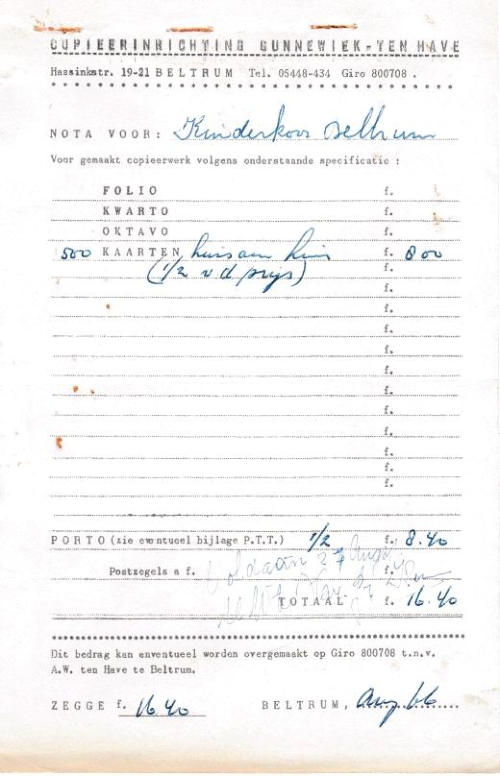 COPIEERINRICHTING GUNNEWIEK-TEN HAVE
Hassinkstr. 19-21 BELTRUM Tel. 05448-434 Giro 800708 .
NOTA VOOR: Kinderkoor Beltrum
Voor gemaakt copieerwerk volgens onderstaande specificatie :
FOLIO f.
KWARTO f.
OKTAVO f.
500 KAARTEN huis aan huis f. 8 00
(1/2 v d prijs) f.
f.
f.
f.
f.
f.
f.
f.
f.
f.
f.
f.
PORTO (zie eventueel bijlage P.T.T.) 1/2 f. 8.40
Voldaan 27 Aug
Postzegels a f. f.
TOTAAL f. 16.40
Dit bedrag kan enventueel worden overgemaakt op Giro 800708 t.n.v.
A.W. ten Have te Beltrum.
ZEGGE f. 16 40 BELTRUM, Aug 66